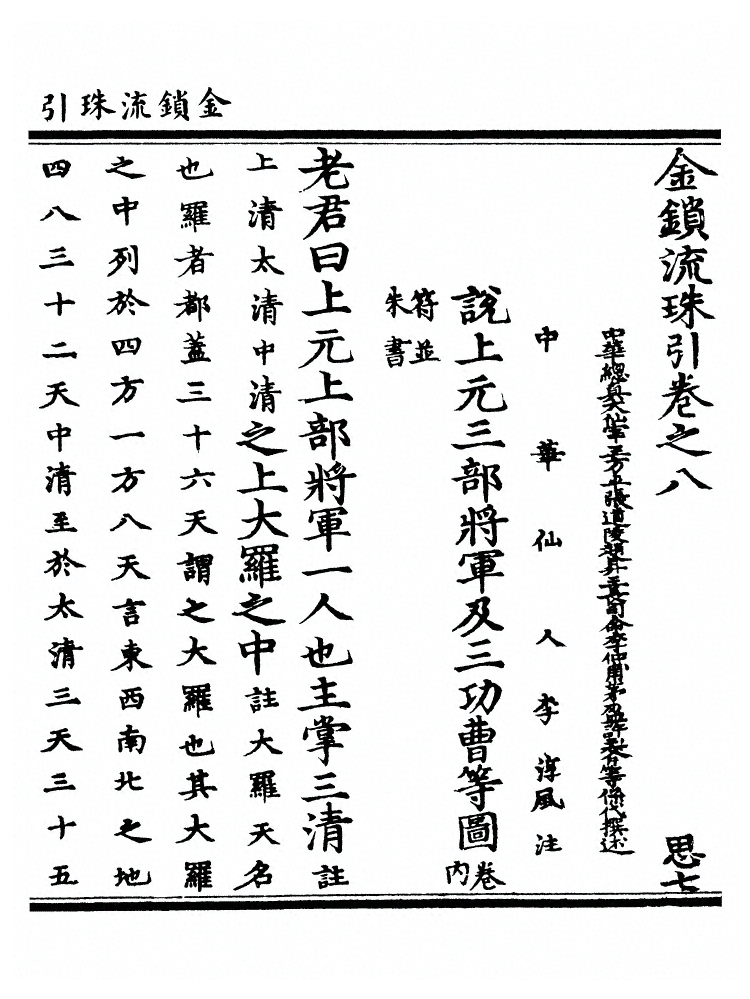 金鎖流珠引
金鎖流珠引卷之八　思七
中華總真大仙宰王方平張道陵趙昇王長司命李仲甫茅盈許玉斧等係代撰述
中華仙人李淳風注
說上元三部將軍及三功曹等圖卷內
符並
朱書
老君曰上元上部將軍一人也主掌三清註
上清太清中清之上大羅之中註大羅天名
也羅者都蓋三十六天謂之大羅也其大羅
之中列於四方一方八天言東西南北之地
四八三十二天中清至於太清三天三十五